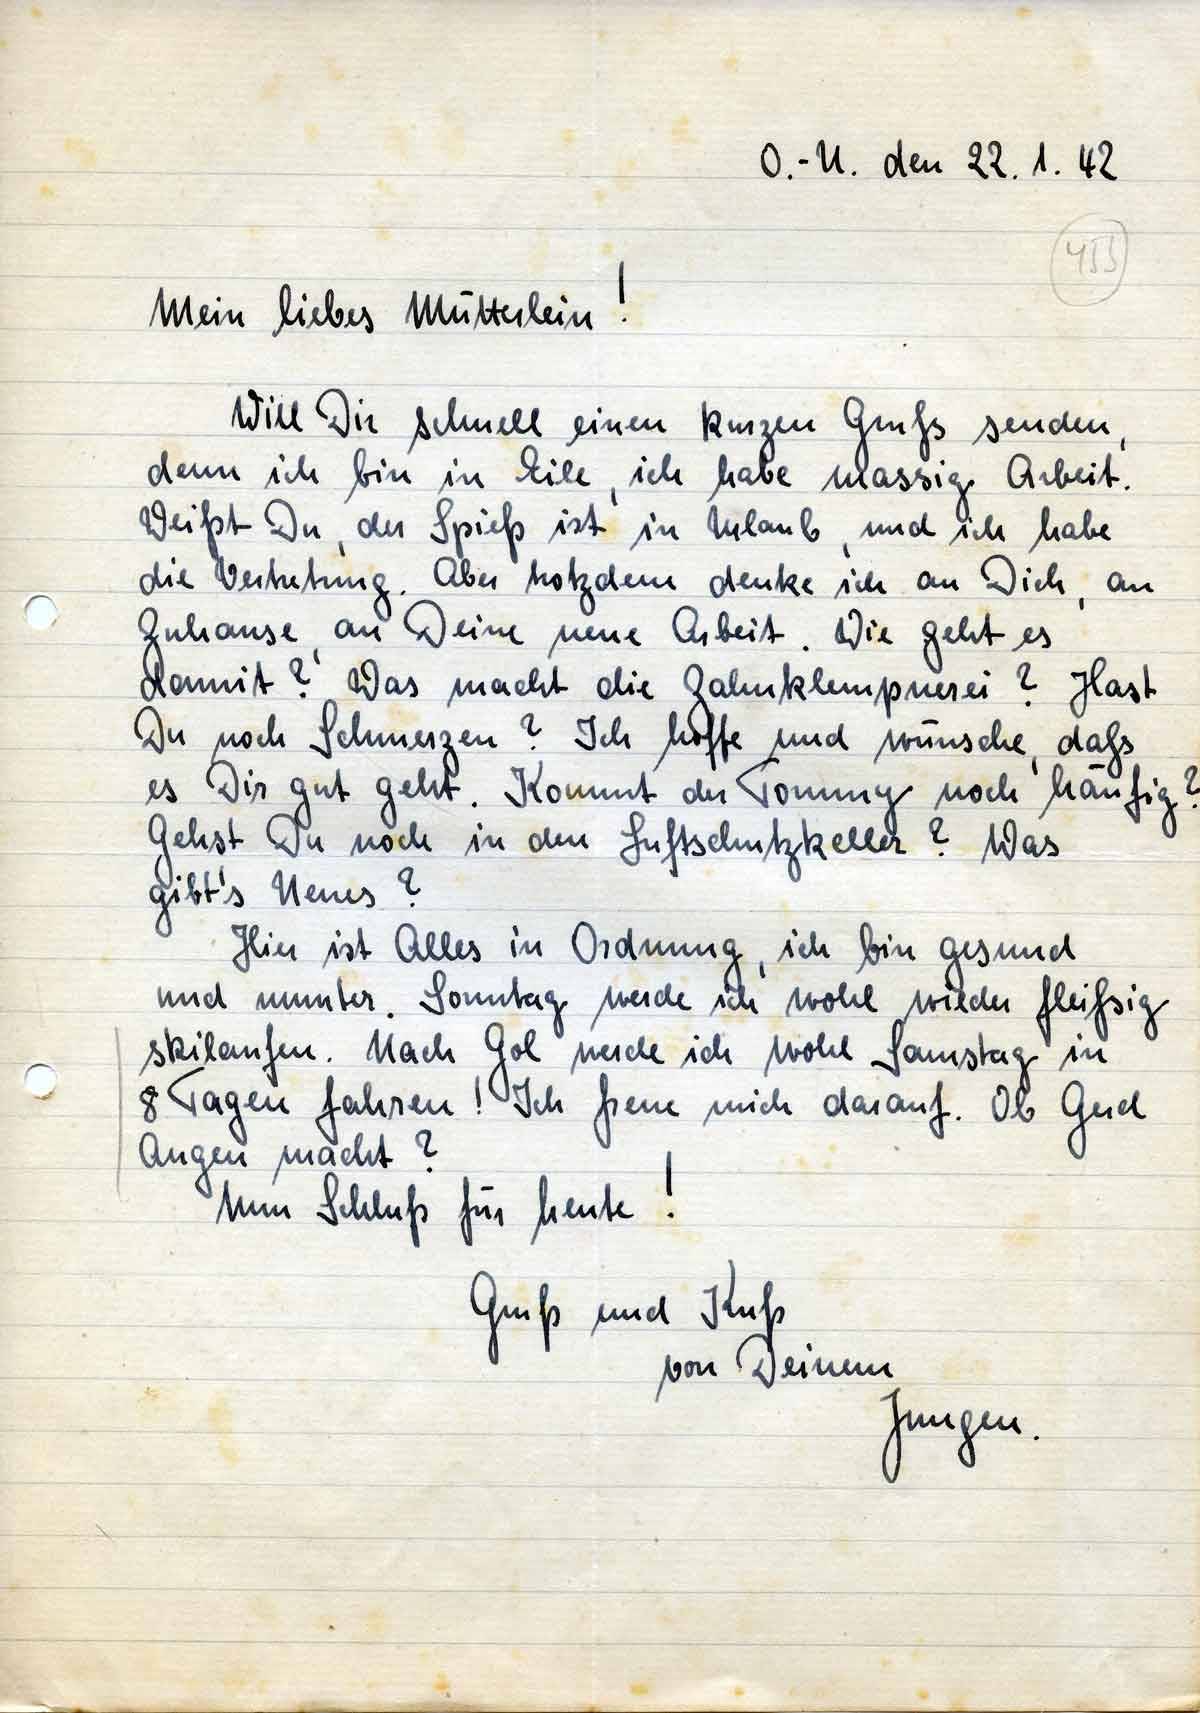 O.-U. den 22.1.42
455
Mein liebes Mütterlein!
Will Dir schnell einen kurzen Gruß senden,
denn ich bin in Eile, ich habe massig Arbeit.
Weißt Du, der Spieß ist in Urlaub, und ich habe
die Vertretung. Aber trotzdem denke ich an Dich, an
Zuhause, an Deine neue Arbeit. Wie geht es
damit? Was macht die Zahnklempnerei? Hast
Du noch Schmerzen? Ich hoffe und wünsche, daß
es Dir gut geht. Kommt der Tommy noch häufig?
Gehst Du noch in den Luftschutzkeller? Was
gibt's Neues?
Hier ist Alles in Ordnung, ich bin gesund
und munter. Sonntag werde ich wohl wieder fleißig
skilaufen. Nach Gol werde ich wohl Samstag in
8 Tagen fahren! Ich freue mich darauf. Ob Gerd
Augen macht?
Nun Schluß für heute!
Gruß und Kuß
von Deinem
Jungen.